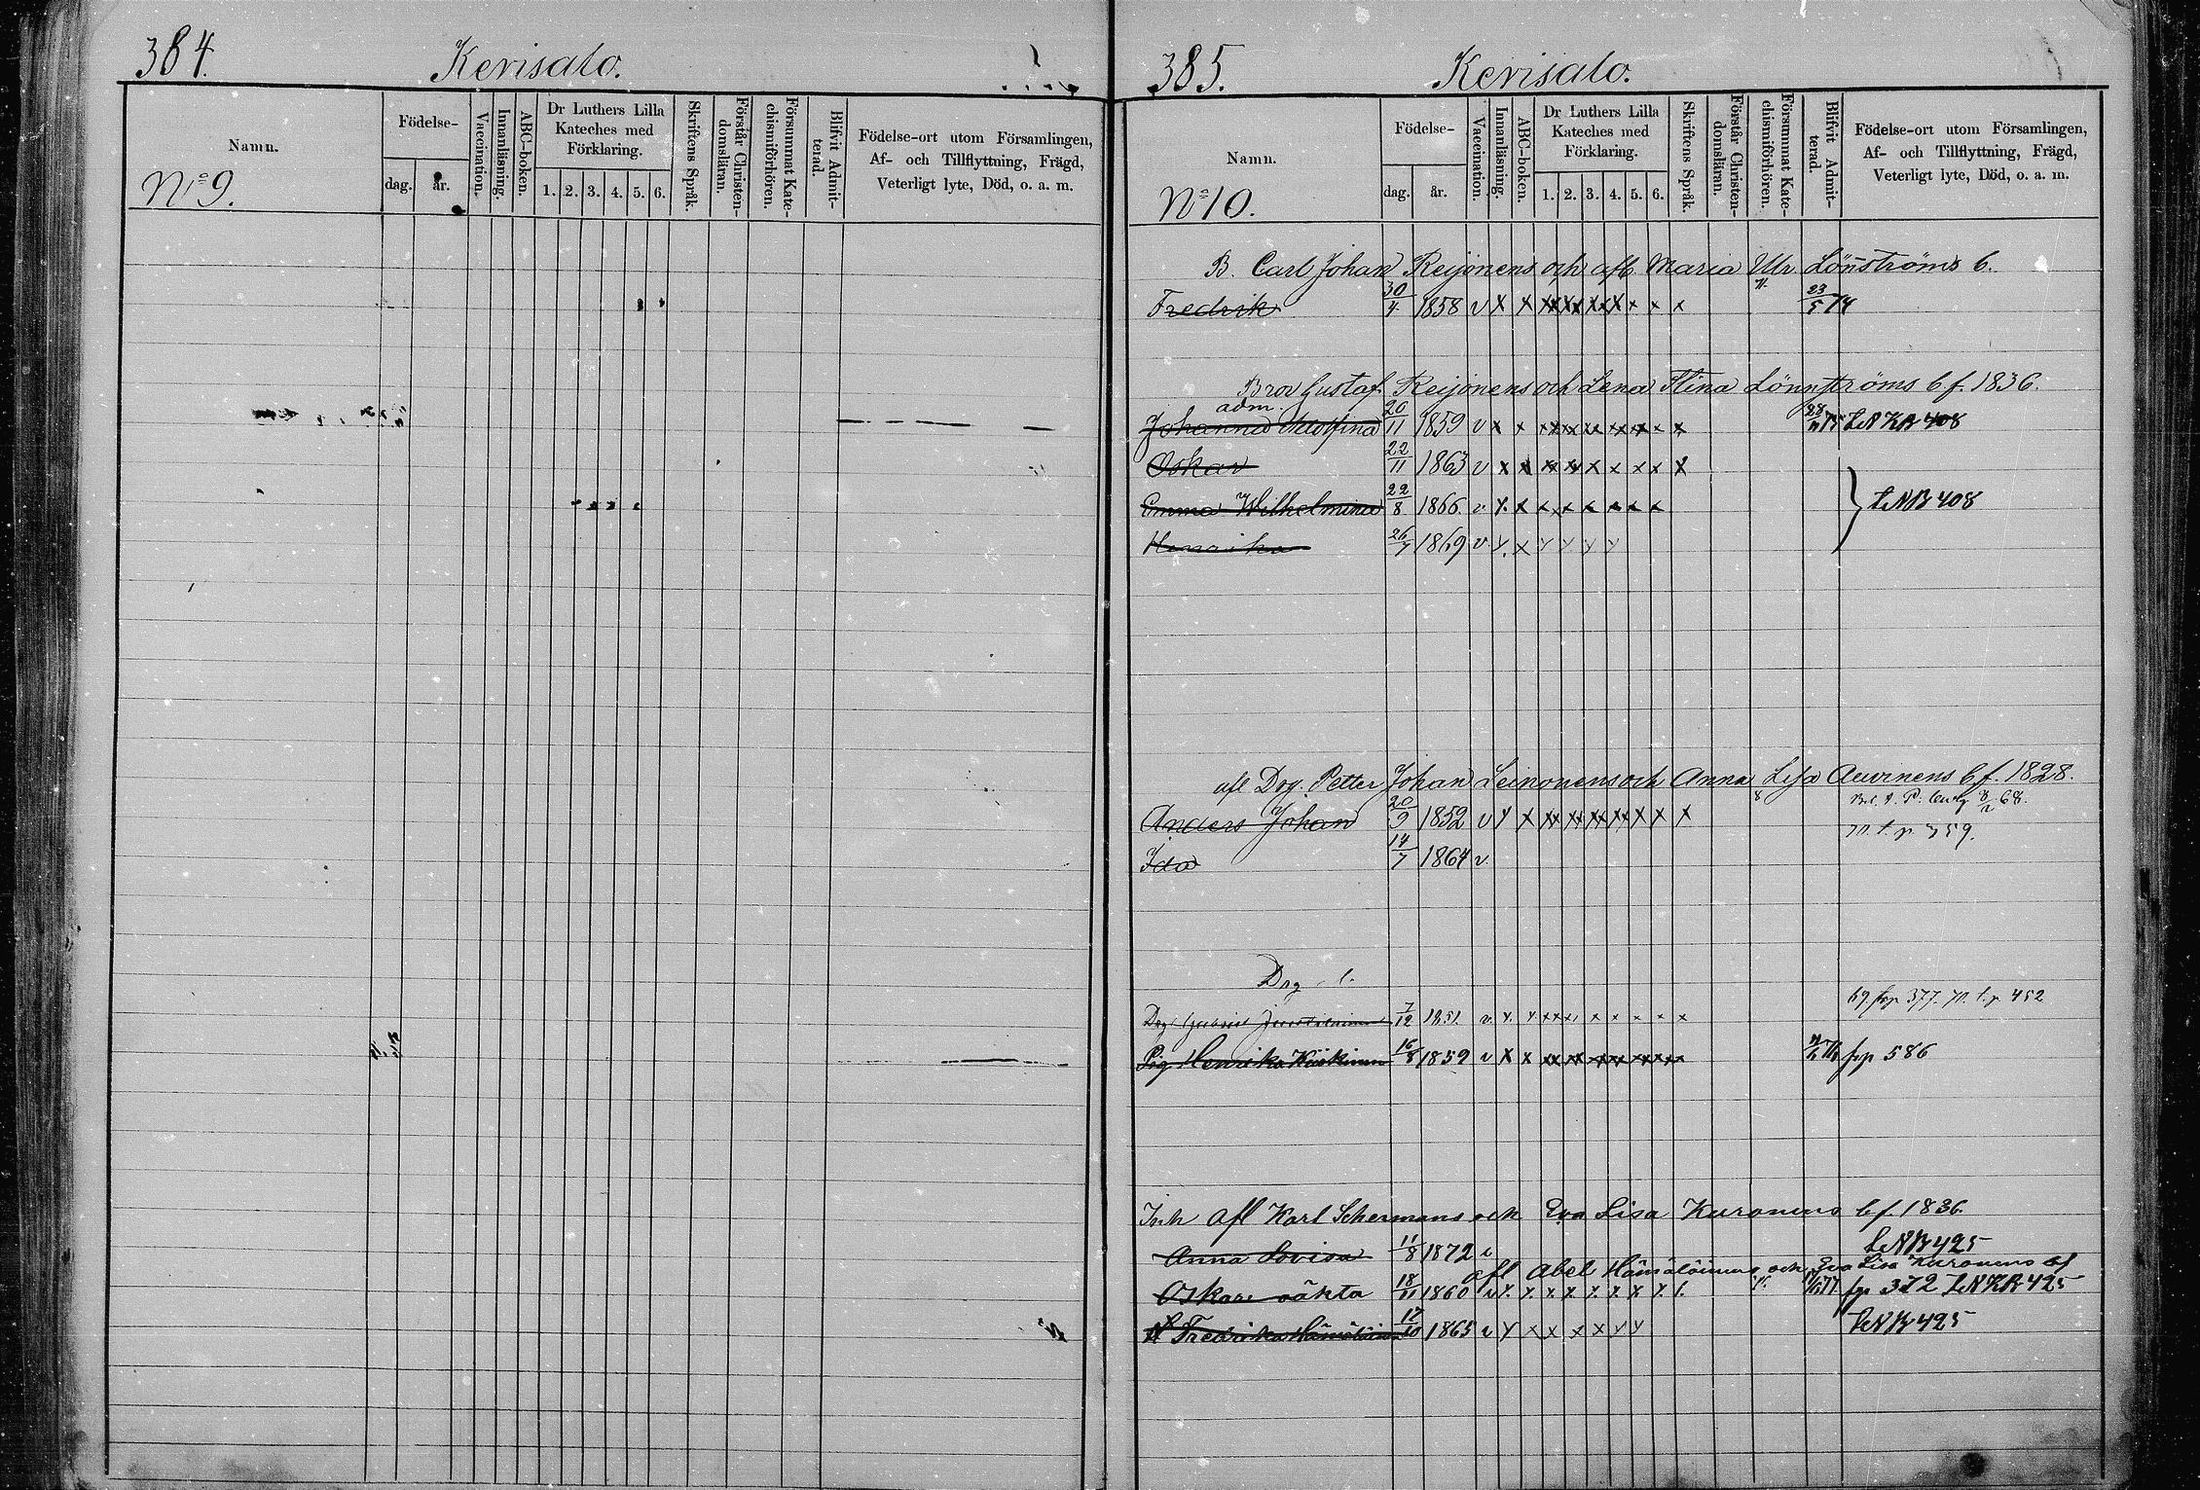 384.
Kerisalo.
Namn.
Födelse-
dag.
år.
Vaccination.
Innanläsning.
ABC-boken.
Dr Luthers Lilla
Kateches med
Förklaring.
1. 2. 3. 4. 5. 6.
Skriftens Språk.
Förstår Christen-
domsläran.
Försummat Kate-
chismiförhören.
Blifvit Admit-
terad.
Födelse-ort utom Församlingen,
Af- och Tillflyttning, Frägd,
Veterligt lyte, Död, o. a. m.
No 9.
385.
Kerisalo.
Namn.
Födelse-
dag.
år.
Vaccination.
Innanläsning.
ABC-boken.
Dr Luthers Lilla
Kateches med
Förklaring.
1. 2. 3. 4. 5. 6.
Skriftens Språk.
Förstår Christen-
domsläran.
Försummat Kate-
chismiförhören.
Blifvit Admit-
terad.
Födelse-ort utom Församlingen,
Af- och Tillflyttning, Frägd,
Veterligt lyte, Död, o. a. m.
No 10.
B. Carl Johan Reijonens och afl. Maria Ulr Lönströms b.
Fredrik 30/4 1858 v x x xx xx xx x x x x 23/5 74
Bror Gustaf Reijonens och Lena Stina Lönnströms b f. 1836.
adm.
Johanna Adolfina 20/11 1859 v x x LNKB 408
Oskar 22/11 1863 v x x
Emma Wilhelmina 22/8 1866. v x x LNB 408
Henrika 1869 v
afl Drg. Petter Johan Leinonens och Anna Lisa Auvinens b f. 1828.
Anders Johan 20/9 1852 v
Ida 14/7 1864 v.
Drg
7/12 1851. v. 377. 452
Pig Henrika 16/8 1859 v x x frp 586
Inh afl Karl Schermans och Eva Lisa Kuronens b f. 1836.
Anna Lovisa 11/8 1872 v LNB 425
afl Abel Hämäläinens och Eva Lisa Kuronens
Oskar oäkta 18/11 1860 v frp 372 LNKB 425
Fredrika Hämäläinen 17/10 1865 v LNB 425